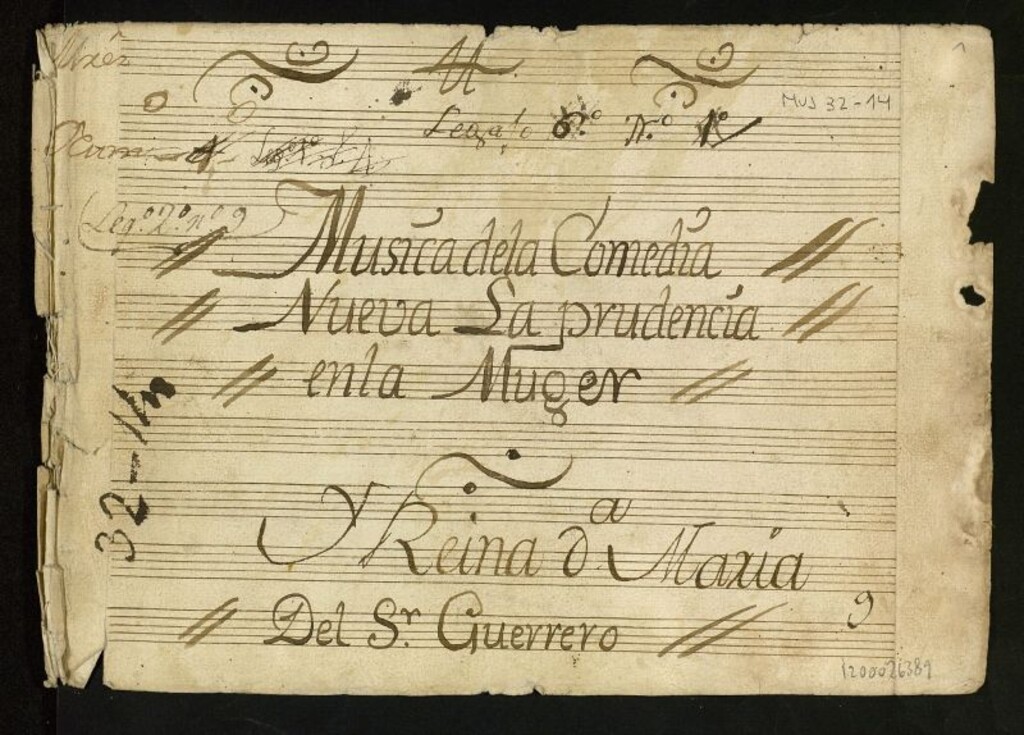 Mus 32-14
Legajo 6.º N.º 1º
Leg.º 2.º nº 9
Musica dela Comedia
Nueva La prudencia
enla Muger
Y Reina Dª Maria
Del Sr. Guerrero
9
32-14
1200026389